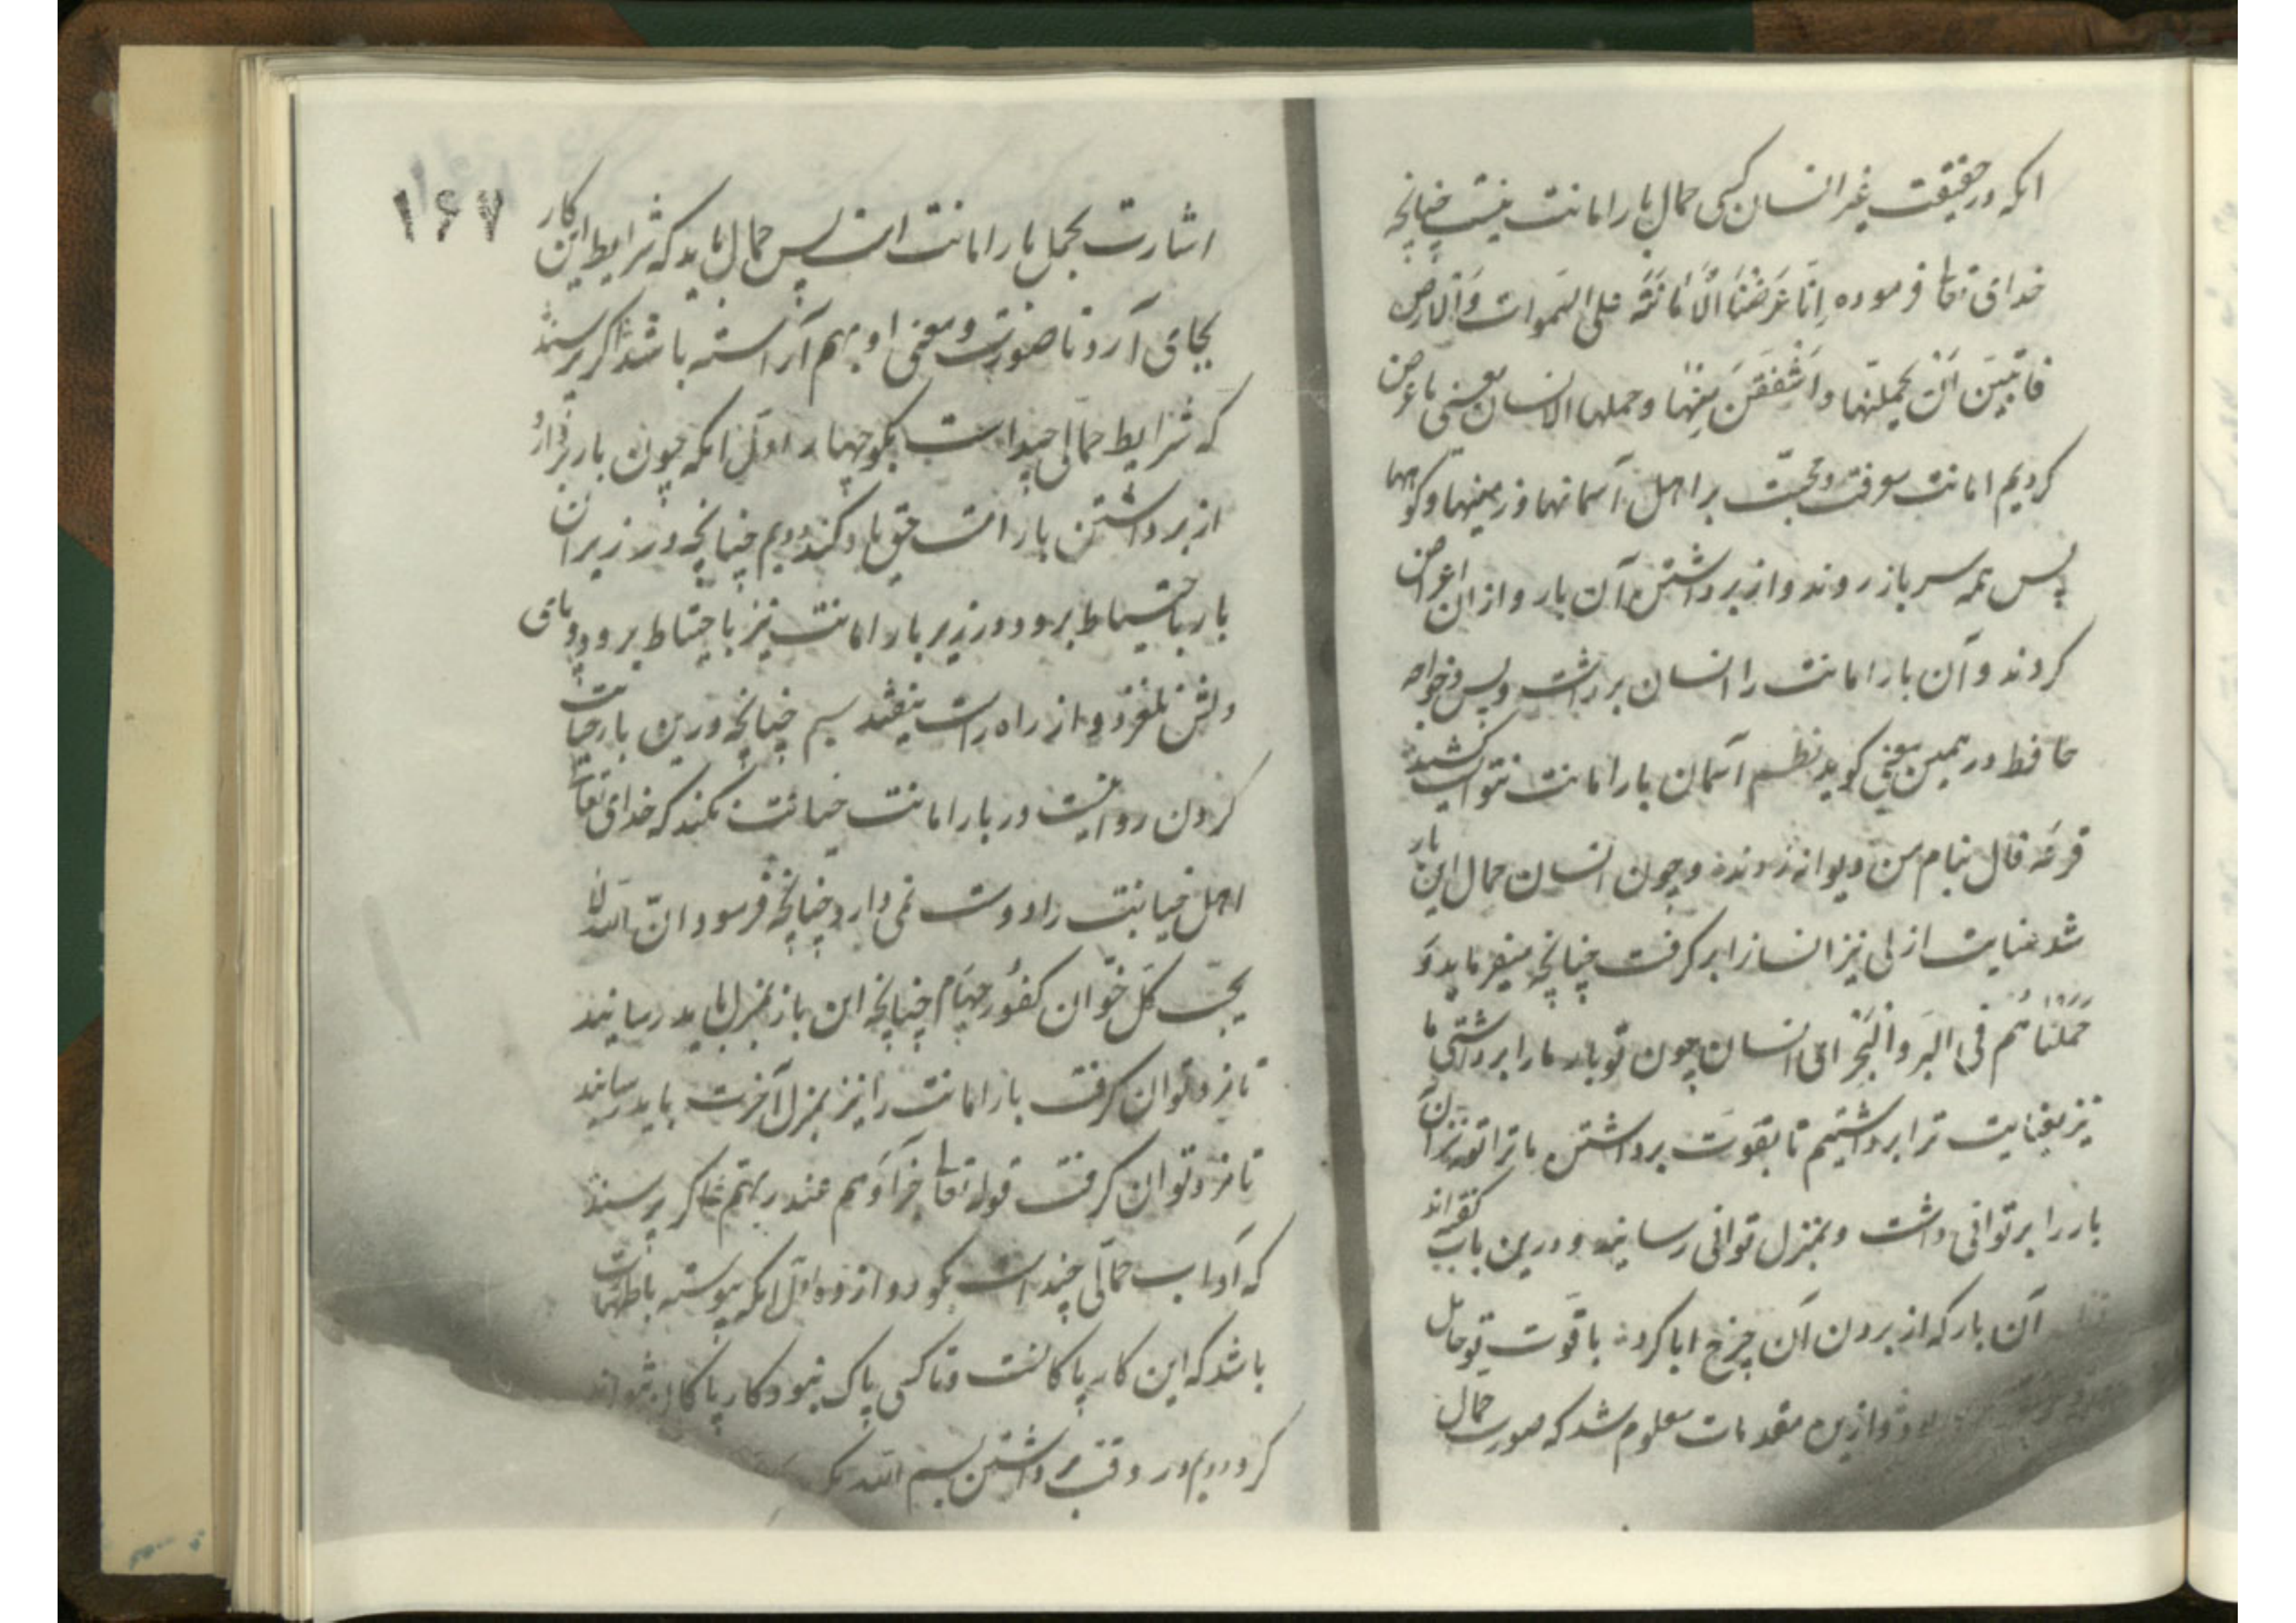 انکه در حقیقت غیر انسان کسی حمال بار امانت نیست چنانچه
خدای تعا فرموده اِنّا عَرَضْنَا الْاَمَانَتَه علی السَّموات وَالْارض
فابَیْنَ اَنْ یَحْمِلنَها وَاَشْفَقْنَ مِنْهَا وحملها الانسان یعنی ما عرض
کردیم امانت معرفت ومحبّت بر اهل آسمانها وزمینها وکوهها
پس همه سر باز زوند واز برداشتن آن بار واز ان اعراض
کردند وآن بار امانت را انسان برداشت وبس وخواجه
حافظ در همین معنی کوید نظم آسمان بار امانت نتوانست کشید
قرعهٔ فال بنام من دیوانه زدند وچون انسان حمال این بار
شد عنایت ازلی نیز انسانرا برکرفت چنانچه میفرماید وَ
حَمَلْنَاهُم فی البَر وَالْبَحْر ای انسان چون تو بار ما را برداشتی ما
نیز بعنایت ترا برداشتیم تا بقوّت برداشتن ما ترا تو نیز آن
بار را بر توانی داشت وبمنزل توانی رسانید ودرین باب کفته اند
آن بار که از بردن آن چرخ ابا کرد با قوّت تو حامل
وازین مقدمات معلوم شد که صورت حمال
۱۶۷
اشارت بحمل بار امانت است پس حمال باید که شرایط این کار
بجای آرد تا صورت ومعنی او بهم آراسته باشد اکر پرسند
که شرایط حمالی چند است بکو چهار اوّل انکه چون بار بردارد
از برداشتن بار امانت حق یاد کند دویم چنانچه در زیر ان
بار باحتیاط برود در زیر بار امانت نیز باحتیاط برود وپای
دلش نلغزد واز راه راست نیفتد سیم چنانچه درین بار خیانت
کردن روا نیست در بار امانت خیانت نکند که خدای تعالی
اهل خیانت را دوست نمی دارد چنانچه فرمود انّ الله لا
یحِبّ کلّ خوّان کفُور چهارم چنانچه این بار بمنزل باید رسانید
تا مزد توان کرفت بار امانت را نیز بمنزل آخرت باید رسانید
تا مزد توان کرفت قوله تعا جزآؤهم عند ربهم اکر پرسند
که آداب حمالی چند است بکو دوازده اوّل انکه پیوسته با طهارت
باشد که این کار پاکانست وتا کسی پاک نبود کار پاکان نتواند
کرد دویم در وقت برداشتن بسم الله